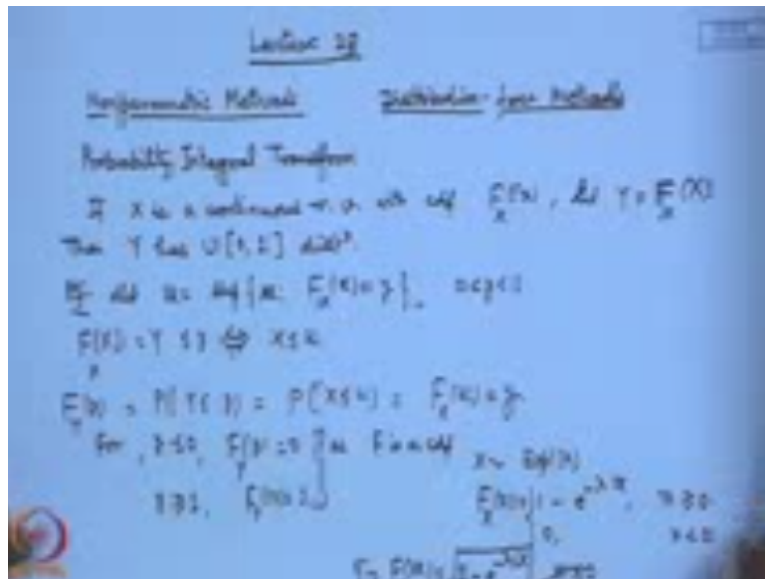 Lecture 28
Nonparametric Methods Distribution-free Methods
Probability Integral Transform
If X is a continuous r.v. with cdf F_X(x), let Y = F_X(X)
Then Y has U[0,1] distⁿ.
Pf Let u = {x: F_X(x) = y}, 0<y<1
F_X(X) = Y ≤ y ⇔ X ≤ u
F_Y(y) = P(Y ≤ y) = P(X ≤ u) = F_X(u) = y
For, y ≤ 0, F_Y(y) = 0 as F is a cdf
y ≥ 1, F_Y(y) = 1
X ~ Exp(λ)
F_X(x) = 1 - e^{-λx}, x ≥ 0
0, x < 0